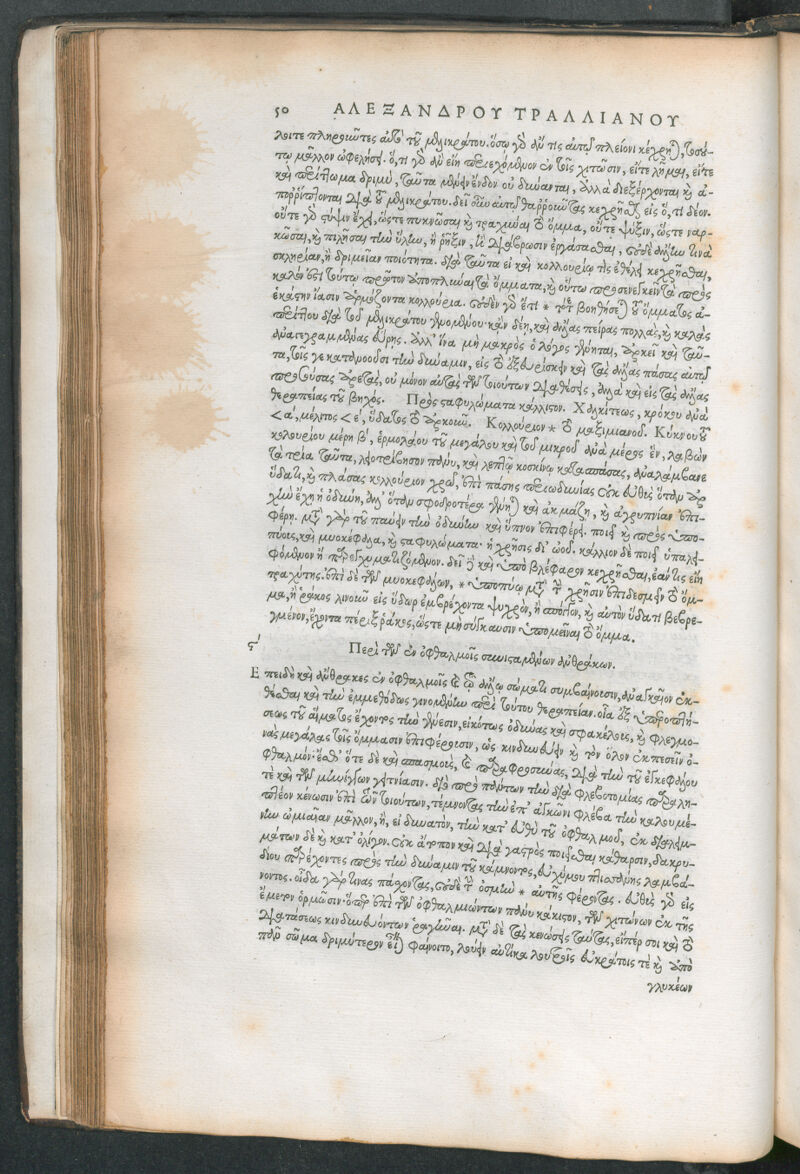 50 ΑΛΕΞΑΝΔΡΟΥ ΤΡΑΛΛΙΑΝΟΥ
πληροῦντες αὐτὸ τοῦ μελικράτου. ὅσῳ γὰρ ἄν τις αὐτῷ πλείονι κέχρηται, τοσού-
τῳ μᾶλλον ὠφελήσει. ὅ,τι γὰρ ἂν εἴη περιεχόμενον ἐν τοῖς χιτῶσιν, εἴτε λῆμαι, εἴτε
καὶ περίττωμα δριμύ, ταῦτα μένειν ἔνδον οὐ δύνανται, ἀλλὰ διεξέρχονται καὶ ἀ-
πορρίπτονται διὰ τοῦ μελικράτου. δεῖ οὖν αὐτῷ θαρροῦντας κεχρῆσθαι εἰς ὅ,τι δέον.
οὔτε γὰρ στύψιν ἔχει, ὥστε πυκνῶσαι καὶ τραχῦναι τὸ ὄμμα, οὔτε ψύξιν, ὥστε ναρ-
κῶσαι, καὶ πιλῆσαι τὴν ὕλην, ἢ ῥῆξιν, ἢ διάβρωσιν ἐργάσασθαι, οὐδὲ ἄλλην τινὰ
σκληρίαν, ἢ δριμεῖαν ποιότητα. διὰ ταῦτα εἰ καὶ κολλουρίῳ τις ἐθέλει κεχρῆσθαι,
καλόν ἐστι τούτῳ πρῶτον ἀποπλῦναι τὰ ὄμματα, καὶ οὕτω προσενεγκεῖν τὰ πρὸς
ἑκάστην ἴασιν ἁρμόζοντα κολλούρια. οὐδὲν γὰρ ἔτι * βοηθήσεται τοῦ ὄμματος ἀ-
περίττου διὰ τοῦ μελικράτου γενομένου. κἂν δέῃ, καὶ ἄλλας πείρας πολλὰς, καὶ καλὰς
ἀναγεγραμμένας εὕρῃς. ἀλλ' ἵνα μὴ μακρὸς ὁ λόγος γένηται, ἀρκεῖ καὶ ταῦ-
τα, τοῖς γε κατανοοῦσι τὴν δύναμιν, εἰς τὸ ἐξευρίσκειν καὶ τὰς ἄλλας πάσας αὐτῷ
προσούσας ἀρετὰς, οὐ μόνον αὐτὰς τῶν τοιούτων διαθέσεις, ἀλλὰ καὶ εἰς τὰς ἄλλας
θεραπείας τοῦ βηχός. Πρὸς σταφυλώματα κάλλιστον. Χαλκίτεως, κρόκου ἀνὰ
< α΄, μέλιτος < ε΄, ὕδατος τὸ ἀρκοῦν. Κολλούριον * τὸ μαξιμιανοῦ. Κύκνου τοῦ
κολουρίου μέρη β΄, ἑρμολάου τοῦ μεγάλου καὶ τοῦ μικροῦ ἀνὰ μέρος ἓν, λαβὼν
τὰ τρία ταῦτα, λειοτρίβησον πάνυ, καὶ λεπτῷ κοσκίνῳ κατασπάσας, ἀναλάμβανε
ὕδατι, καὶ πλάσας κολλούριον χρῶ, ἐπὶ πάσης περιωδυνίας οὐκ εὐθὺς ὅταν ἀρ-
χὴν ἔχῃ ἡ ὀδύνη, ἀλλ' ὅταν σφοδροτέρα γένηται καὶ ἀκμάζῃ, καὶ ἀγρυπνίαν ἐπι-
φέρῃ. μετὰ γὰρ τοῦ παύειν τὴν ὀδύνην καὶ ὕπνον ἐπιφέρει. ποιεῖ καὶ πρὸς ὑπο-
πύους, καὶ μυοκέφαλα, καὶ σταφυλώματα. ἡ χρῆσις δι' ὠοῦ. κάλλιον δὲ ποιεῖ ὑπαλει-
φόμενον ἢ παρεγχυματιζόμενον. δεῖ δὲ καὶ ὑπὸ βλέφαρον κεχρῆσθαι, ἐάν τις εἴη
τραχύτης. ἐπὶ δὲ τῶν μυοκεφάλων, * ὑποπύω μετὰ τὴν χρῆσιν ἐπιδεσμεῖν τὸ ὄμ-
μα, ἢ ῥάκος λινοῦν εἰς ὕδωρ ἐμβρέχοντα ψυχρὸν, ἢ σπόγγον, καὶ αὐτὸν ὕδατι βεβρε-
γμένον, ἔχοντα πέριξ ῥάκος, ὥστε μὴ σύγκαυσιν ὑπομεῖναι τὸ ὄμμα.
ϛ΄ Περὶ τῶν ἐν ὀφθαλμοῖς συνισταμένων ἀνθράκων.
Ἐπειδὴ καὶ ἄνθρακες ἐν ὀφθαλμοῖς καὶ τῷ ἄλλῳ σώματι συμβαίνουσιν, ἀναγκαῖον ἐκ-
θέσθαι καὶ τὴν ἐμμεθόδως γινομένην περὶ τούτου θεραπείαν. οἷα ἐξ ὑπεροπτή-
σεως τοῦ αἵματος ἔχοντες τὴν γένεσιν, εἰκότως ὀδύνας καὶ σφακέλους, καὶ φλεγμο-
νὰς μεγάλας τοῖς ὄμμασιν ἐπιφέρουσιν, ὡς κινδυνεύειν καὶ τὸν ὅλον ἐκπεσεῖν ὀ-
φθαλμόν. ἔσθ' ὅτε δὲ καὶ σπασμοὺς, καὶ παραφροσύνας, διὰ τὴν τοῦ ἐγκεφάλου
τε καὶ τῶν μηνίγγων γειτνίασιν. διὸ πρὸ πάντων τὴν διὰ φλεβοτομίας παραλη-
πτέον κένωσιν ἐπὶ τῶν τοιούτων, τέμνοντας τὴν ἐπ' ἀγκῶνι φλέβα τὴν καλουμέ-
νην ὠμιαίαν μᾶλλον, ἢ, εἰ δυνατὸν, τὴν κατ' εὐθὺ τοῦ ὀφθαλμοῦ, ἐκ διαλειμ-
μάτων δὲ καὶ κατ' ὀλίγον. οὐκ ἄτοπον καὶ διὰ γαστρὸς ποιεῖσθαι κάθαρσιν, δακρυ-
δίου παρέχοντες πρὸς τὴν δύναμιν τοῦ κάμνοντος, εὐχύμου πτισάνης λαμβά-
νοντος. οἶδα γάρ τινας πάσχοντας, οὐδὲ τὴν ὀσμὴν * αὐτῆς φέροντας. εὐθὺς γὰρ εἰς
ἔμετον ὁρμῶσιν. ὅπερ ἐπὶ τῶν ὀφθαλμιώντων πάνυ κάκιστον, τῶν χιτώνων ἐκ τῆς
διατάσεως κινδυνευόντων ῥαγῆναι. μετὰ δὲ τὰς κενώσεις ταύτας, εἴπερ σοι καὶ τὸ
πᾶν σῶμα δριμύτερον εἶναι φαίνοιτο, λούειν αὐτίκα λουτροῖς εὐκράτοις τε καὶ ἀπὸ
γλυκέων